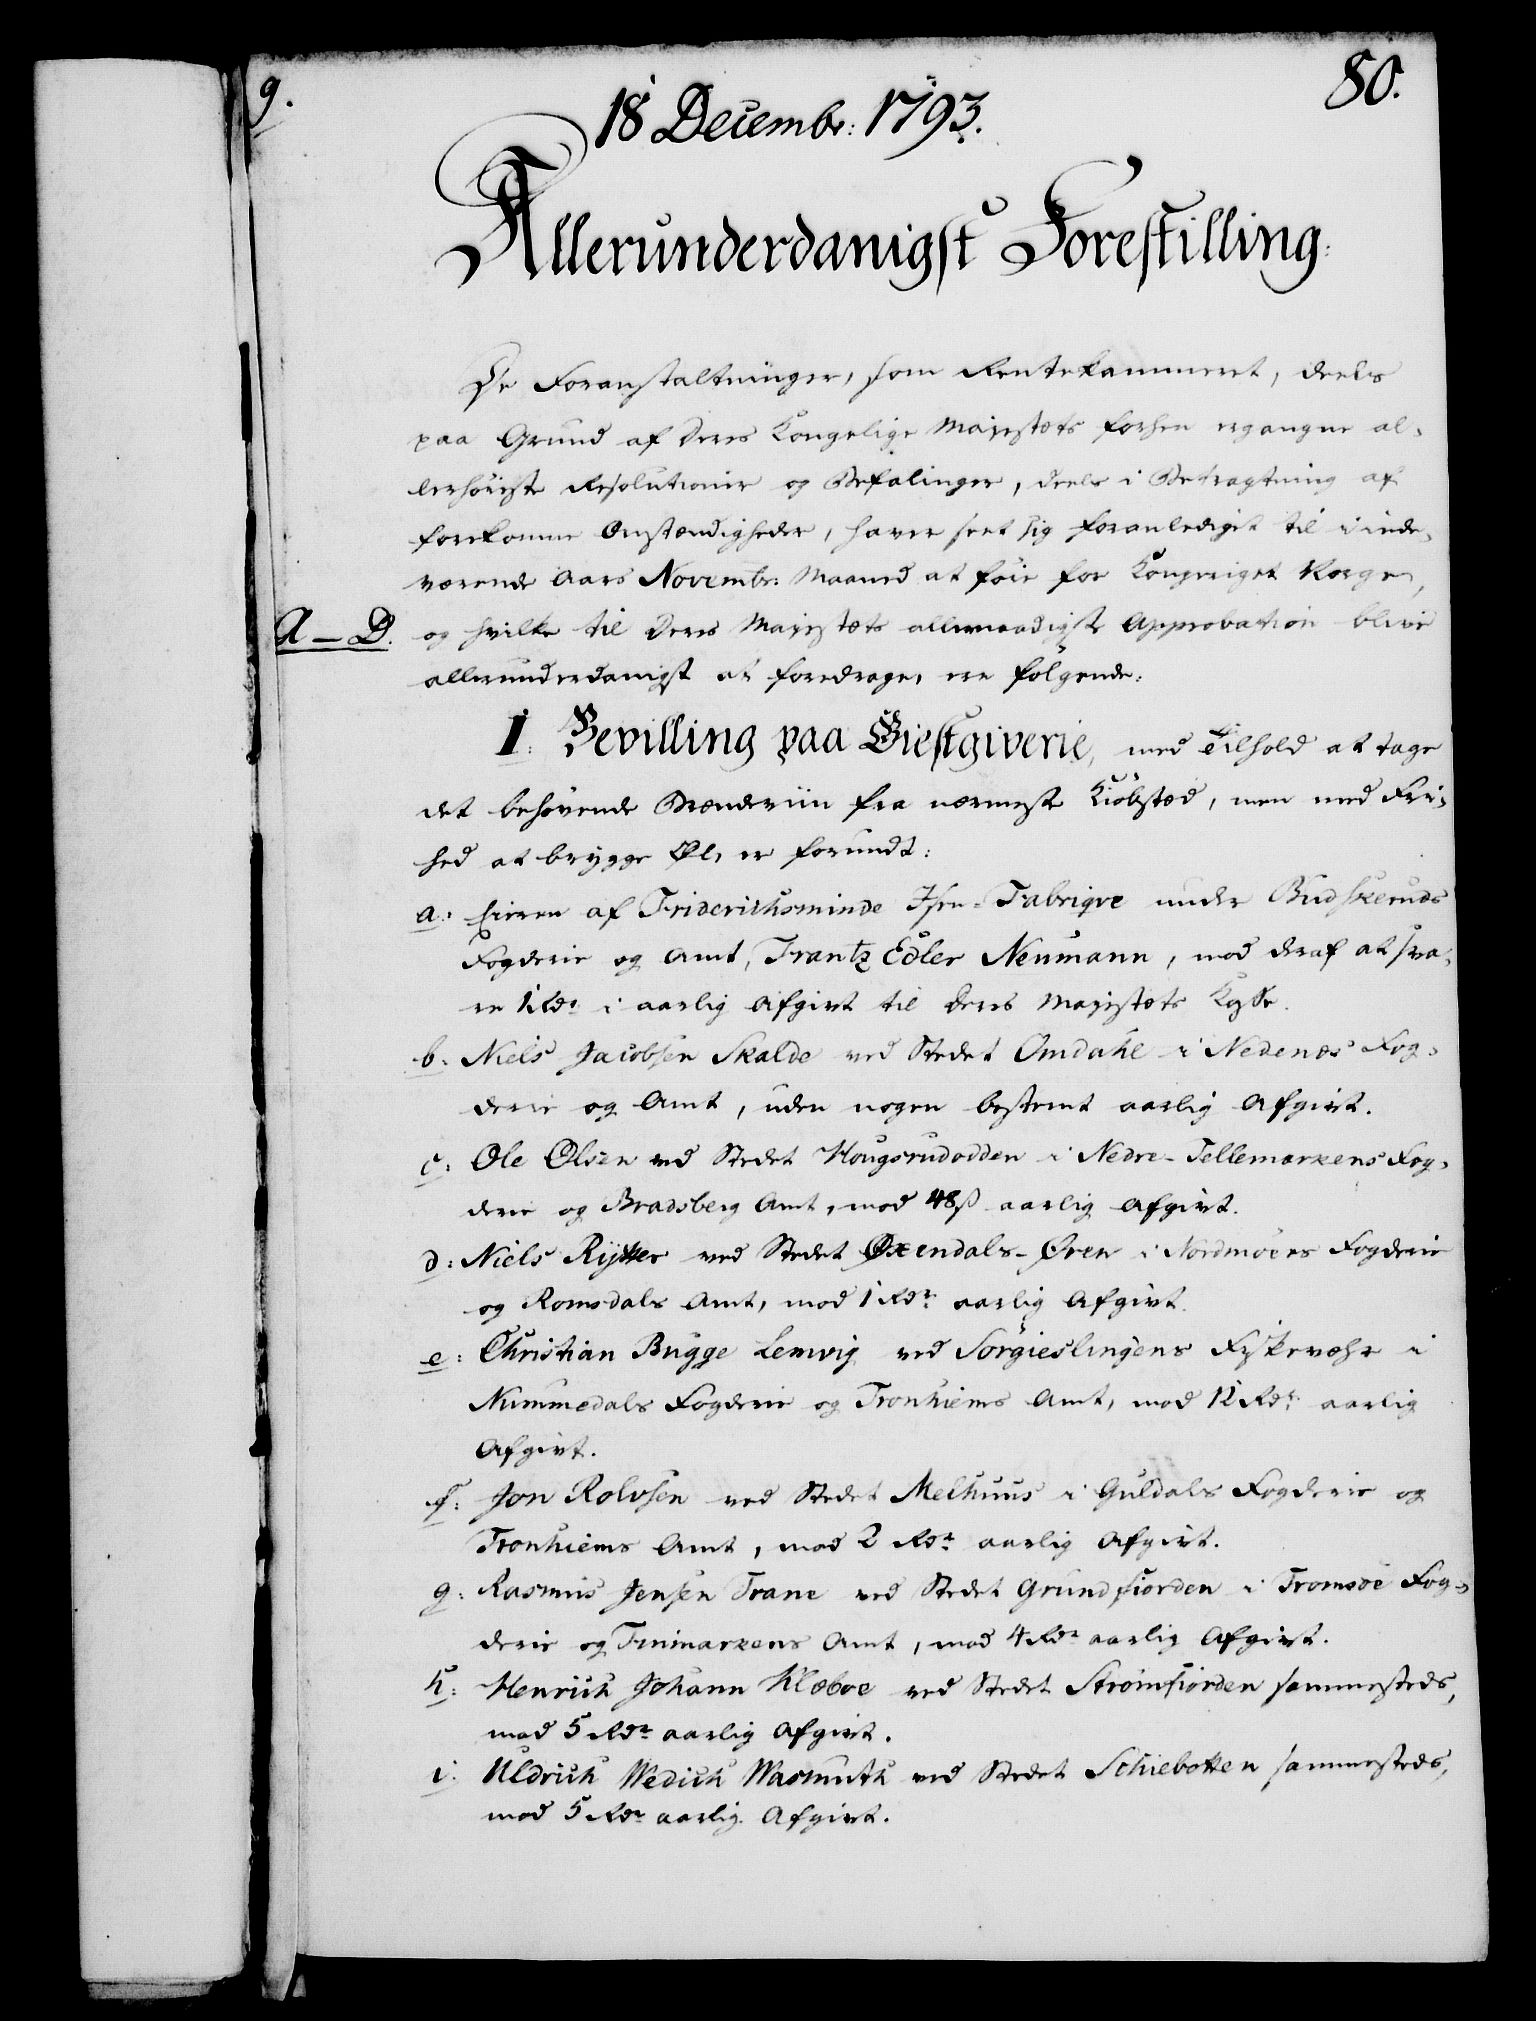 9.
80.
18 Decembr: 1793.
Allerunderdanigst Forestilling:
De Foranstaltninger, som Rentekammeret, deels
paa Grund af Deres Kongelige Majestæts forhen ergangne al-
lerhöieste Resolutioner og Befalinger, deels i Betragtning af
forekomne Omstændigheder, haver seet sig foranlediget til i inde-
værende Aars Novembr: Maaned at föie for Kongeriget Norge,
A – D.
og hvilke til Deres Majestæts allernaadigste Approbation blive
allerunderdanigst at foredrage, ere fölgende:
I. Bevilling paa Giestgiverie, med Tilhold at tage
det behövende Brændeviin fra nærmeste Kiöbstæd, men med Fri-
hed at brygge Öl, er forundt:
a: Eieren af Friderichsminde Isen-Fabriqve under Budskeruds
Fogderie og Amt, Frantz Edler Neumann, mod deraf at sva-
re 1 Rdr i aarlig Afgivt til Deres Majestæts Kasse.
b: Niels Jacobsen Skalde ved Stedet Omdahl i Nedenæs Fog-
derie og Amt, uden nogen bestemt aarlig Afgivt.
c: Ole Olsen ved Stedet Hougsrudodden i Nedre-Tellemarkens Fog-
derie og Bradsberg Amt, mod 48 ß aarlig Afgivt.
d: Niels Rytter ved Stedet Öxendals-Ören i Nordmöers Fogderie
og Romsdals Amt, mod 1 Rdr aarlig Afgivt.
e: Christian Bugge Lemvig ved Sörgieslingens Fiskevæhr i
Nummedals Fogderie og Tronhiems Amt, mod 12 Rdr aarlig
Afgivt.
f: Jon Rolvsen ved Stedet Melhuus i Guldals Fogderie og
Tronhiems Amt, mod 2 Rdr aarlig Afgivt.
g: Rasmus Jensen Trane ved Stedet Grundfiorden i Tromsöe Fog-
derie og Finmarkens Amt, mod 4 Rdr aarlig Afgivt.
h: Henrich Johann Klæboe ved Stedet Strömfiorden sammesteds,
mod 5 Rdr aarlig Afgivt.
i: Uldrich Wedich Wasmuth ved Stedet Schiebotten sammesteds,
mod 5 Rdr aarlig Afgivt.